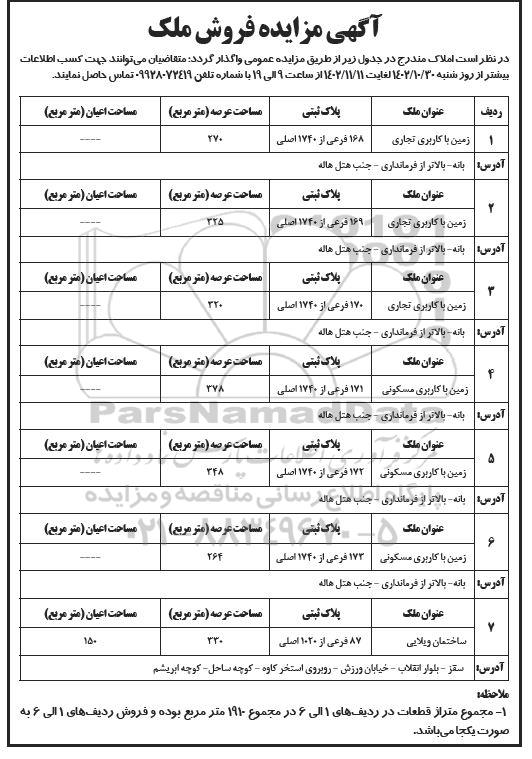 آگهی مزایده فروش ملک
در نظر است املاک مندرج در جدول زیر از طریق مزایده عمومی واگذار گردد؛ متقاضیان می‌توانند جهت کسب اطلاعات
بیشتر از روز شنبه ۱۴۰۲/۱۰/۳۰ لغایت ۱۴۰۲/۱۱/۱۱ از ساعت ۹ الی ۱۹ با شماره تلفن ۰۹۹۲۸۰۷۲۴۱۹ تماس حاصل نمایند.
ردیف عنوان ملک پلاک ثبتی مساحت عرصه (متر مربع) مساحت اعیان (متر مربع)
۱ زمین با کاربری تجاری ۱۶۸ فرعی از ۱۷۴۰ اصلی ۲۷۰ ----
آدرس: بانه- بالاتر از فرمانداری - جنب هتل هاله
۲ عنوان ملک پلاک ثبتی مساحت عرصه (متر مربع) مساحت اعیان (متر مربع)
زمین با کاربری تجاری ۱۶۹ فرعی از ۱۷۴۰ اصلی ۳۲۵ ----
آدرس: بانه- بالاتر از فرمانداری - جنب هتل هاله
۳ عنوان ملک پلاک ثبتی مساحت عرصه (متر مربع) مساحت اعیان (متر مربع)
زمین با کاربری تجاری ۱۷۰ فرعی از ۱۷۴۰ اصلی ۳۲۰ ----
آدرس: بانه- بالاتر از فرمانداری - جنب هتل هاله
۴ عنوان ملک پلاک ثبتی مساحت عرصه (متر مربع) مساحت اعیان (متر مربع)
زمین با کاربری مسکونی ۱۷۱ فرعی از ۱۷۴۰ اصلی ۳۷۸ ----
آدرس: بانه- بالاتر از فرمانداری - جنب هتل هاله
۵ عنوان ملک پلاک ثبتی مساحت عرصه (متر مربع) مساحت اعیان (متر مربع)
زمین با کاربری مسکونی ۱۷۲ فرعی از ۱۷۴۰ اصلی ۳۴۸ ----
آدرس: بانه- بالاتر از فرمانداری - جنب هتل هاله
۶ عنوان ملک پلاک ثبتی مساحت عرصه (متر مربع) مساحت اعیان (متر مربع)
زمین با کاربری مسکونی ۱۷۳ فرعی از ۱۷۴۰ اصلی ۲۶۴ ----
آدرس: بانه- بالاتر از فرمانداری - جنب هتل هاله
۷ عنوان ملک پلاک ثبتی مساحت عرصه (متر مربع) مساحت اعیان (متر مربع)
ساختمان ویلایی ۸۷ فرعی از ۱۰۲۰ اصلی ۳۳۰ ۱۵۰
آدرس: سقز - بلوار انقلاب - خیابان ورزش - روبروی استخر کاوه - کوچه ساحل- کوچه ابریشم
ملاحظه:
۱- مجموع متراژ قطعات در ردیف‌های ۱ الی ۶ در مجموع ۱۹۱۰ متر مربع بوده و فروش ردیف‌های ۱ الی ۶ به
صورت یکجا می‌باشد.
ParsNamadData
پایگاه اطلاع رسانی مناقصه و مزایده
۰۲۱-۸۸۳۴۹۶۷۰-۵